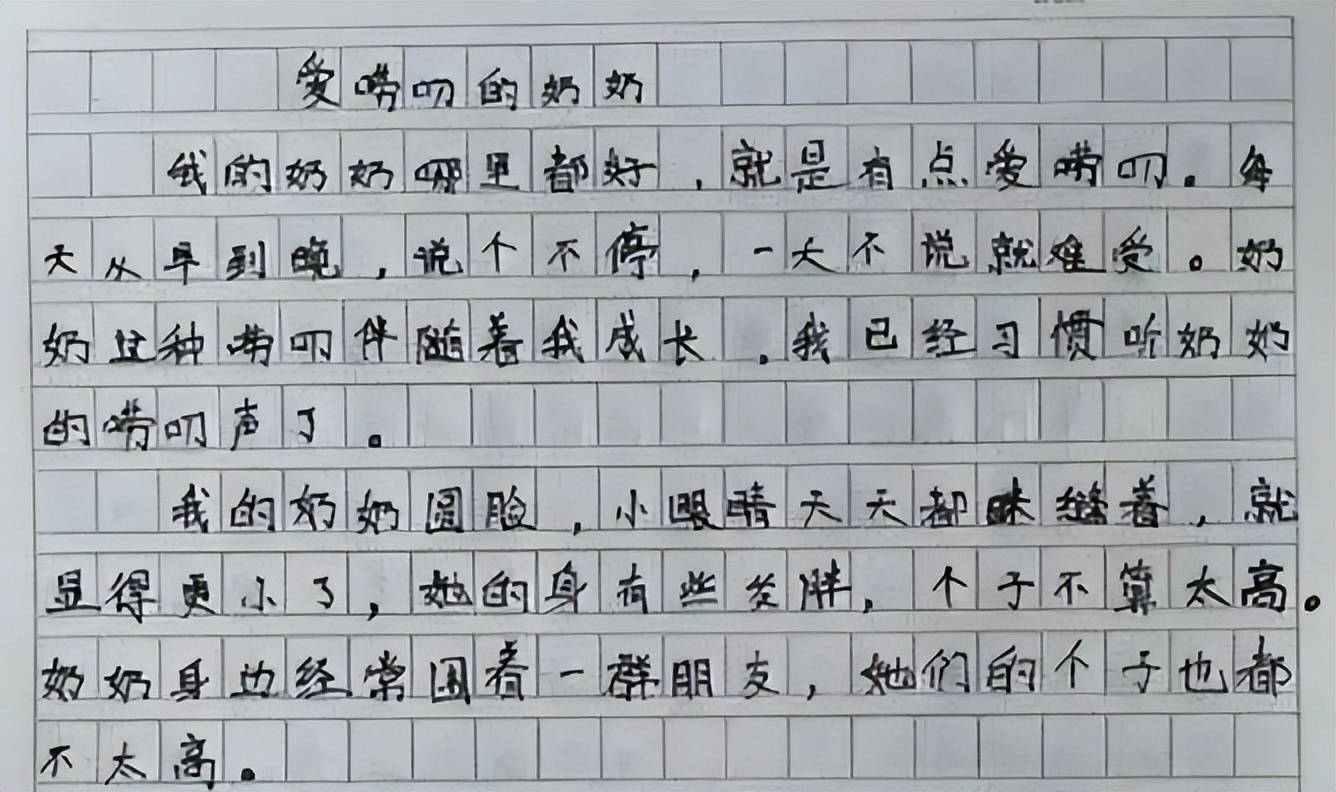 爱唠叨的奶奶
我的奶奶哪里都好，就是有点爱唠叨。每
天从早到晚，说个不停，一天不说就难受。奶
奶这种唠叨伴随着我成长，我已经习惯听奶奶
的唠叨声了。
我的奶奶圆脸，小眼睛天天都眯缝着，就
显得更小了，她的身有些发胖，个子不算太高。
奶奶身边经常围着一群朋友，她们的个子也都
不太高。